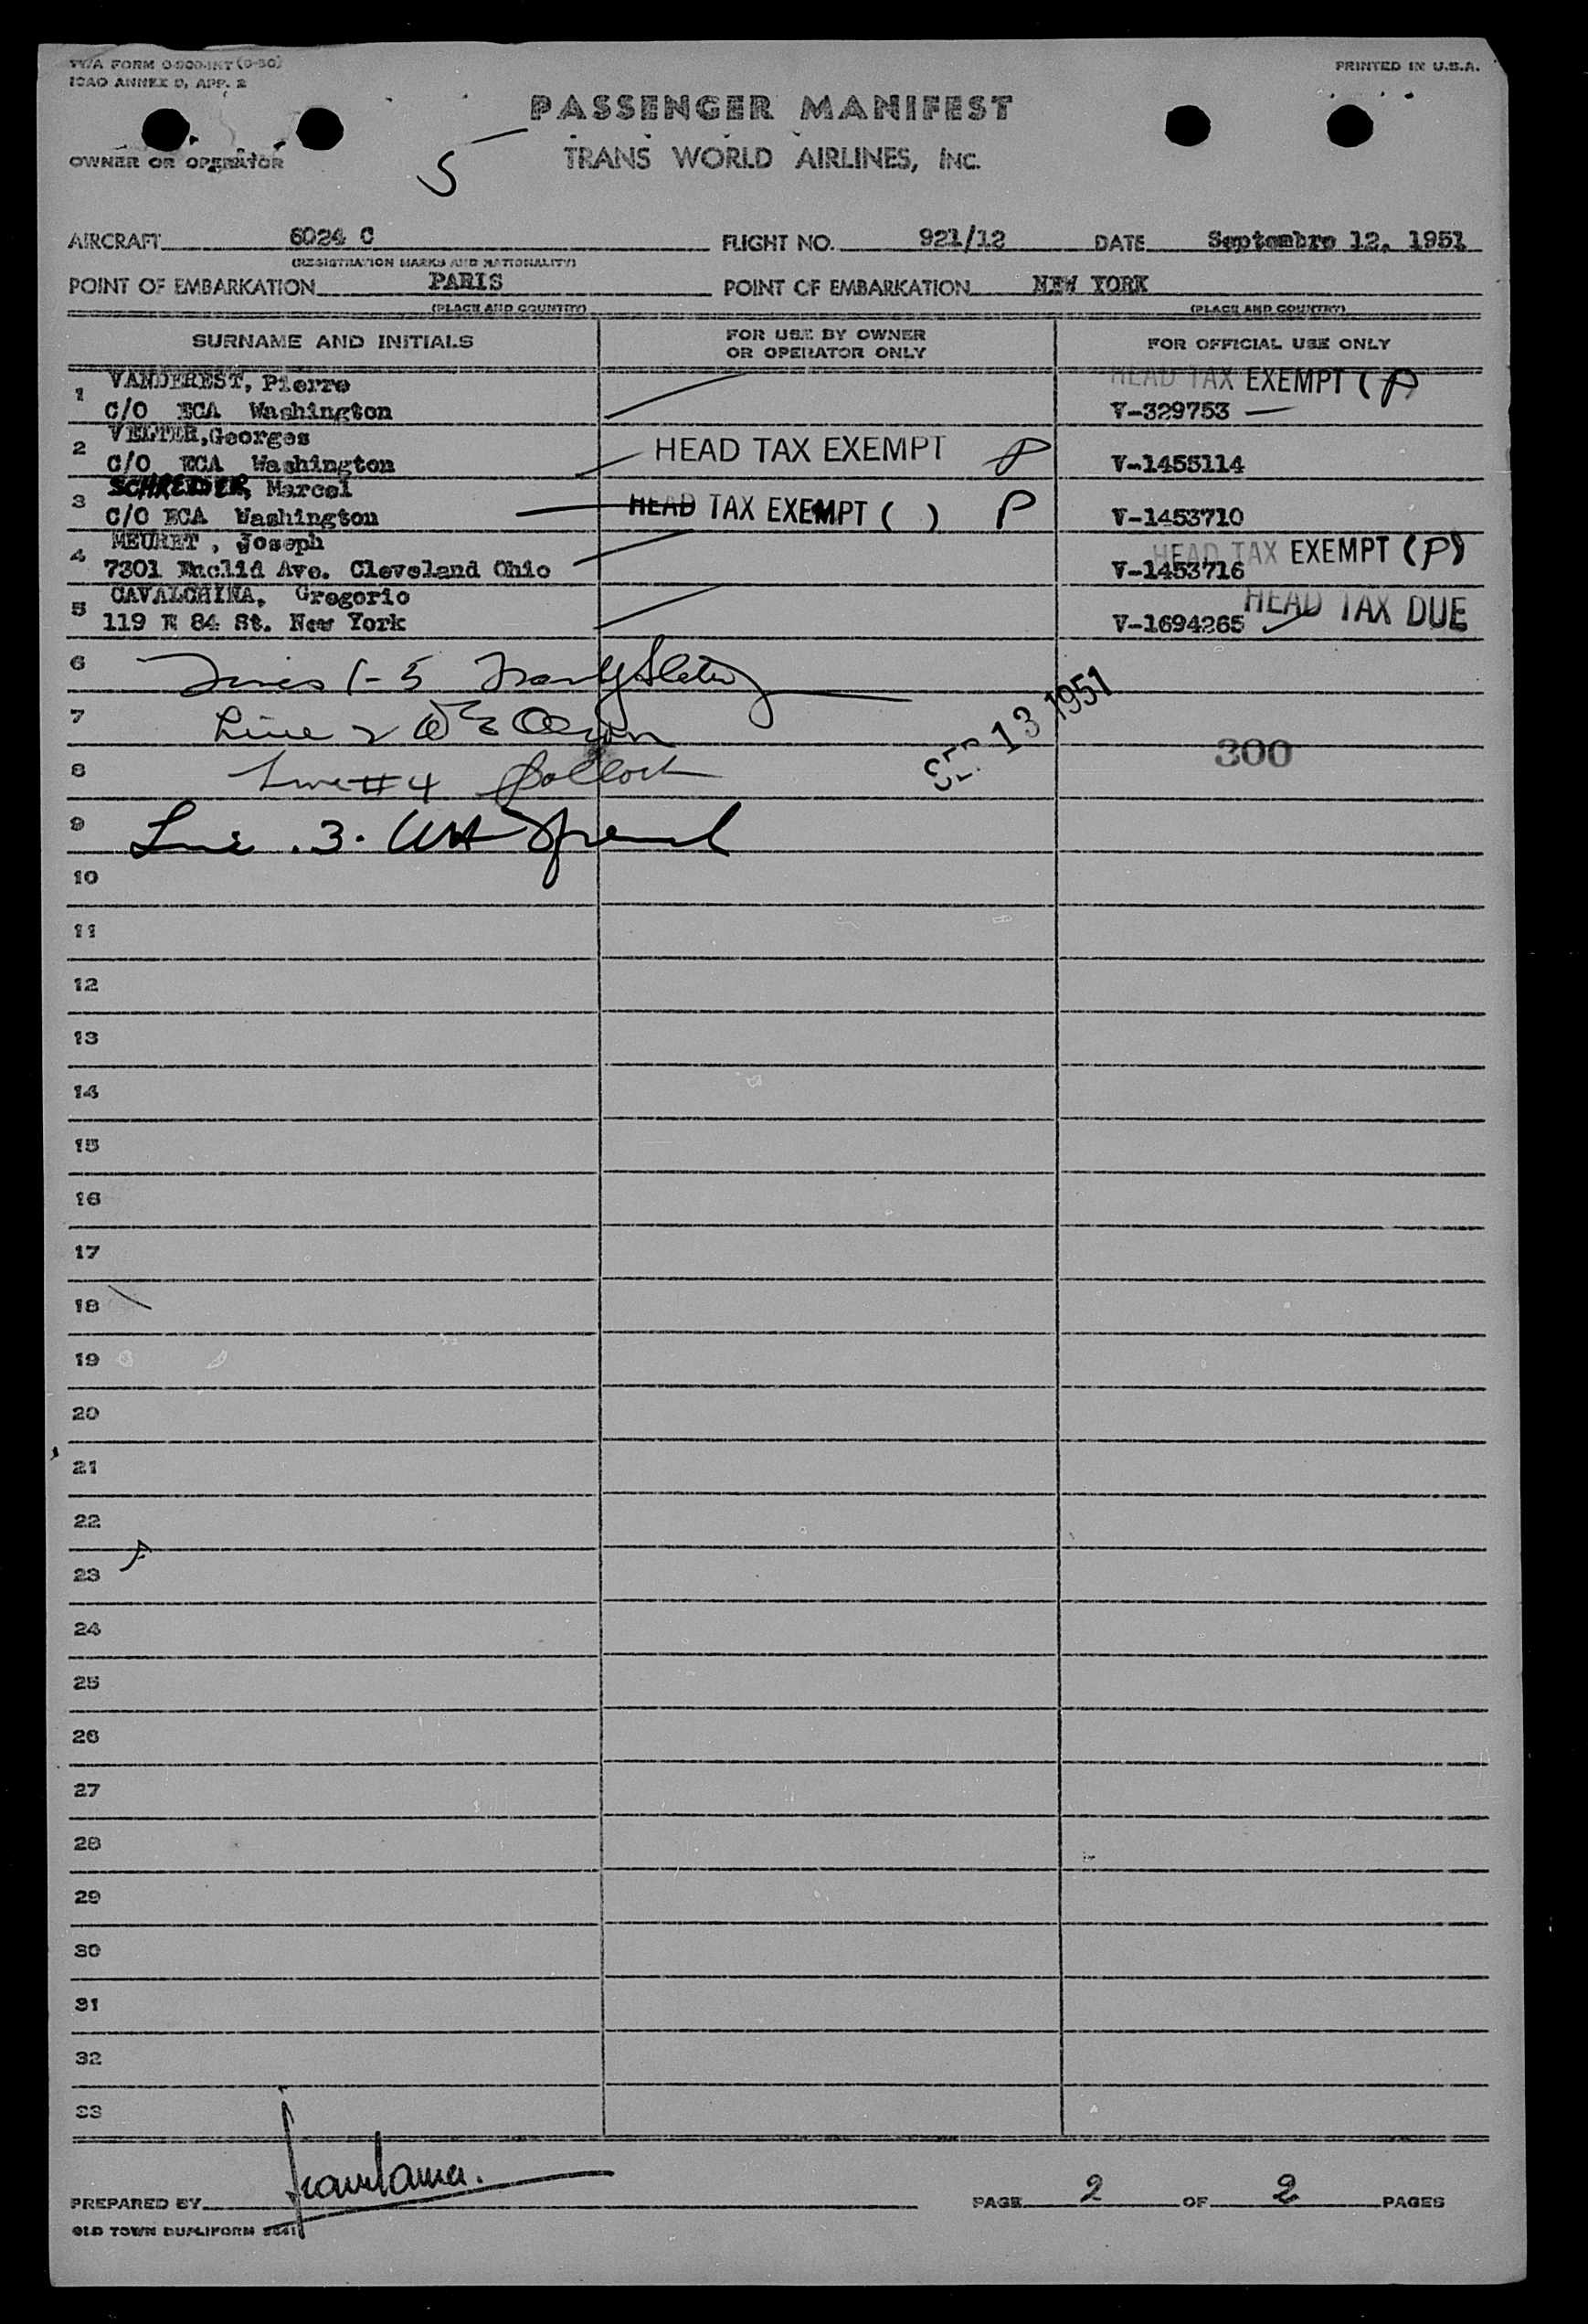 TWA FORM O-900-INT (9-50)
ICAO ANNEX 9, APP. 2
PRINTED IN U.S.A.
PASSENGER MANIFEST
OWNER OR OPERATOR
TRANS WORLD AIRLINES, INC.
5
AIRCRAFT 6024 C FLIGHT NO. 921/12 DATE Septembre 12, 1951
(REGISTRATION MARKS AND NATIONALITY)
POINT OF EMBARKATION PARIS POINT OF EMBARKATION NEW YORK
(PLACE AND COUNTRY) (PLACE AND COUNTRY)
SURNAME AND INITIALS FOR USE BY OWNER OR OPERATOR ONLY FOR OFFICIAL USE ONLY
1 VANDEREST, Pierre HEAD TAX EXEMPT (P)
C/O ECA Washington V-329753
2 VELTER, Georges HEAD TAX EXEMPT P
C/O ECA Washington V-1455114
3 SCHREIDER, Marcel HEAD TAX EXEMPT ( ) P
C/O ECA Washington V-1453710
4 MEURET, Joseph HEAD TAX EXEMPT (P)
7301 Euclid Ave. Cleveland Ohio V-1453716
5 CAVALCHINA, Gregorio HEAD TAX DUE
119 E 84 St. New York V-1694265
6 Lines 1-5
7 Line 2
SEP 13 1951
300
8 Line #4 Pollock
9 Line .3.
10
11
12
13
14
15
16
17
18
19
20
21
22
23
24
25
26
27
28
29
30
31
32
33
PREPARED BY PAGE 2 OF 2 PAGES
OLD TOWN DUPLIFORM